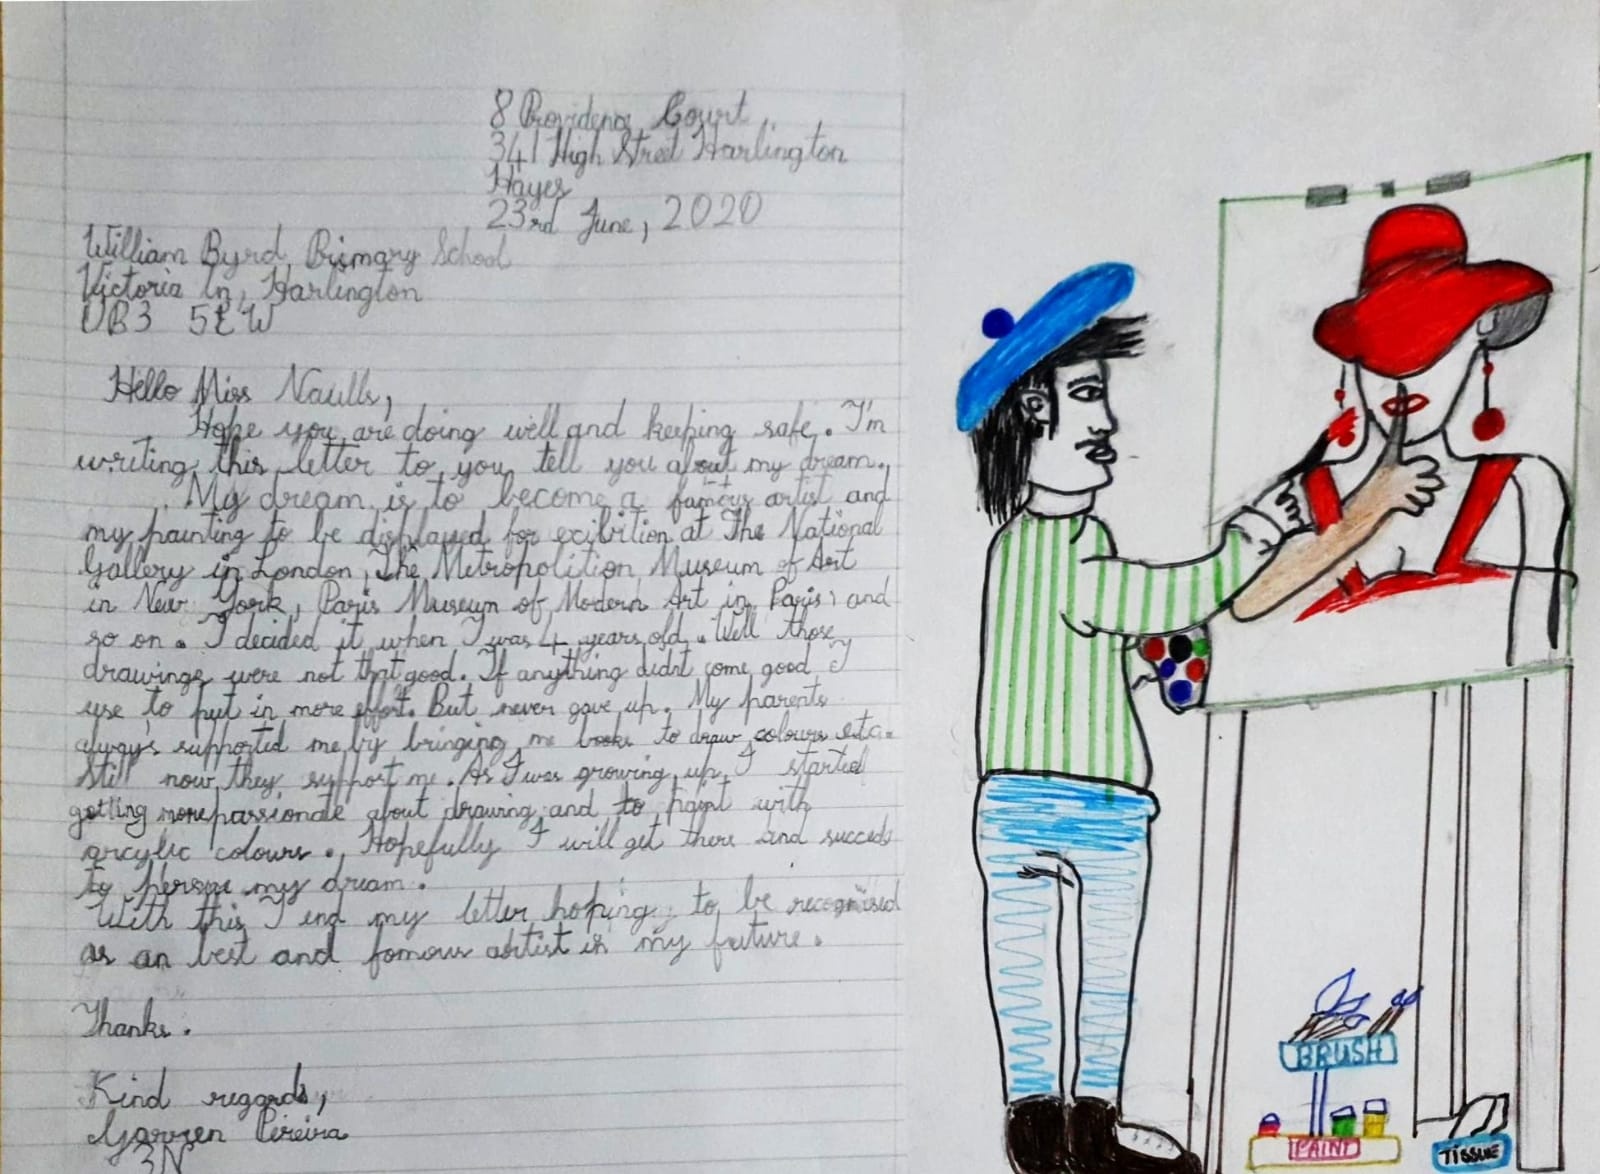 8 Providence Court
341 High Street Harlington
Hayes
23rd June, 2020
William Byrd Primary School
Victoria ln, Harlington
UB3 5EW
Hello Miss Naulls,
Hope you are doing well and keeping safe. I'm
writing this letter to you tell you about my dream.
My dream is to become a famous artist and
my painting to be displayed for exibition at The National
Gallery in London, The Metropolition Museum of Art
in New York, Paris Museum of Modern Art in Paris, and
so on. I decided it when I was 4 years old. Well those
drawings were not that good. If anything didnt come good I
use to put in more effort. But never gave up. My parents
always supported me by bringing me books to draw colours etc..
Still now they support me. As I was growing up, I started
getting more passionate about drawing and to paint with
arcylic colours. Hopefully I will get there and succeds
to persue my dream.
With this I end my letter hoping to be recognised
as an best and famous artist in my future.
Thanks.
Kind regards,
Pereira
3N
BRUSH
PAINT
TISSUE